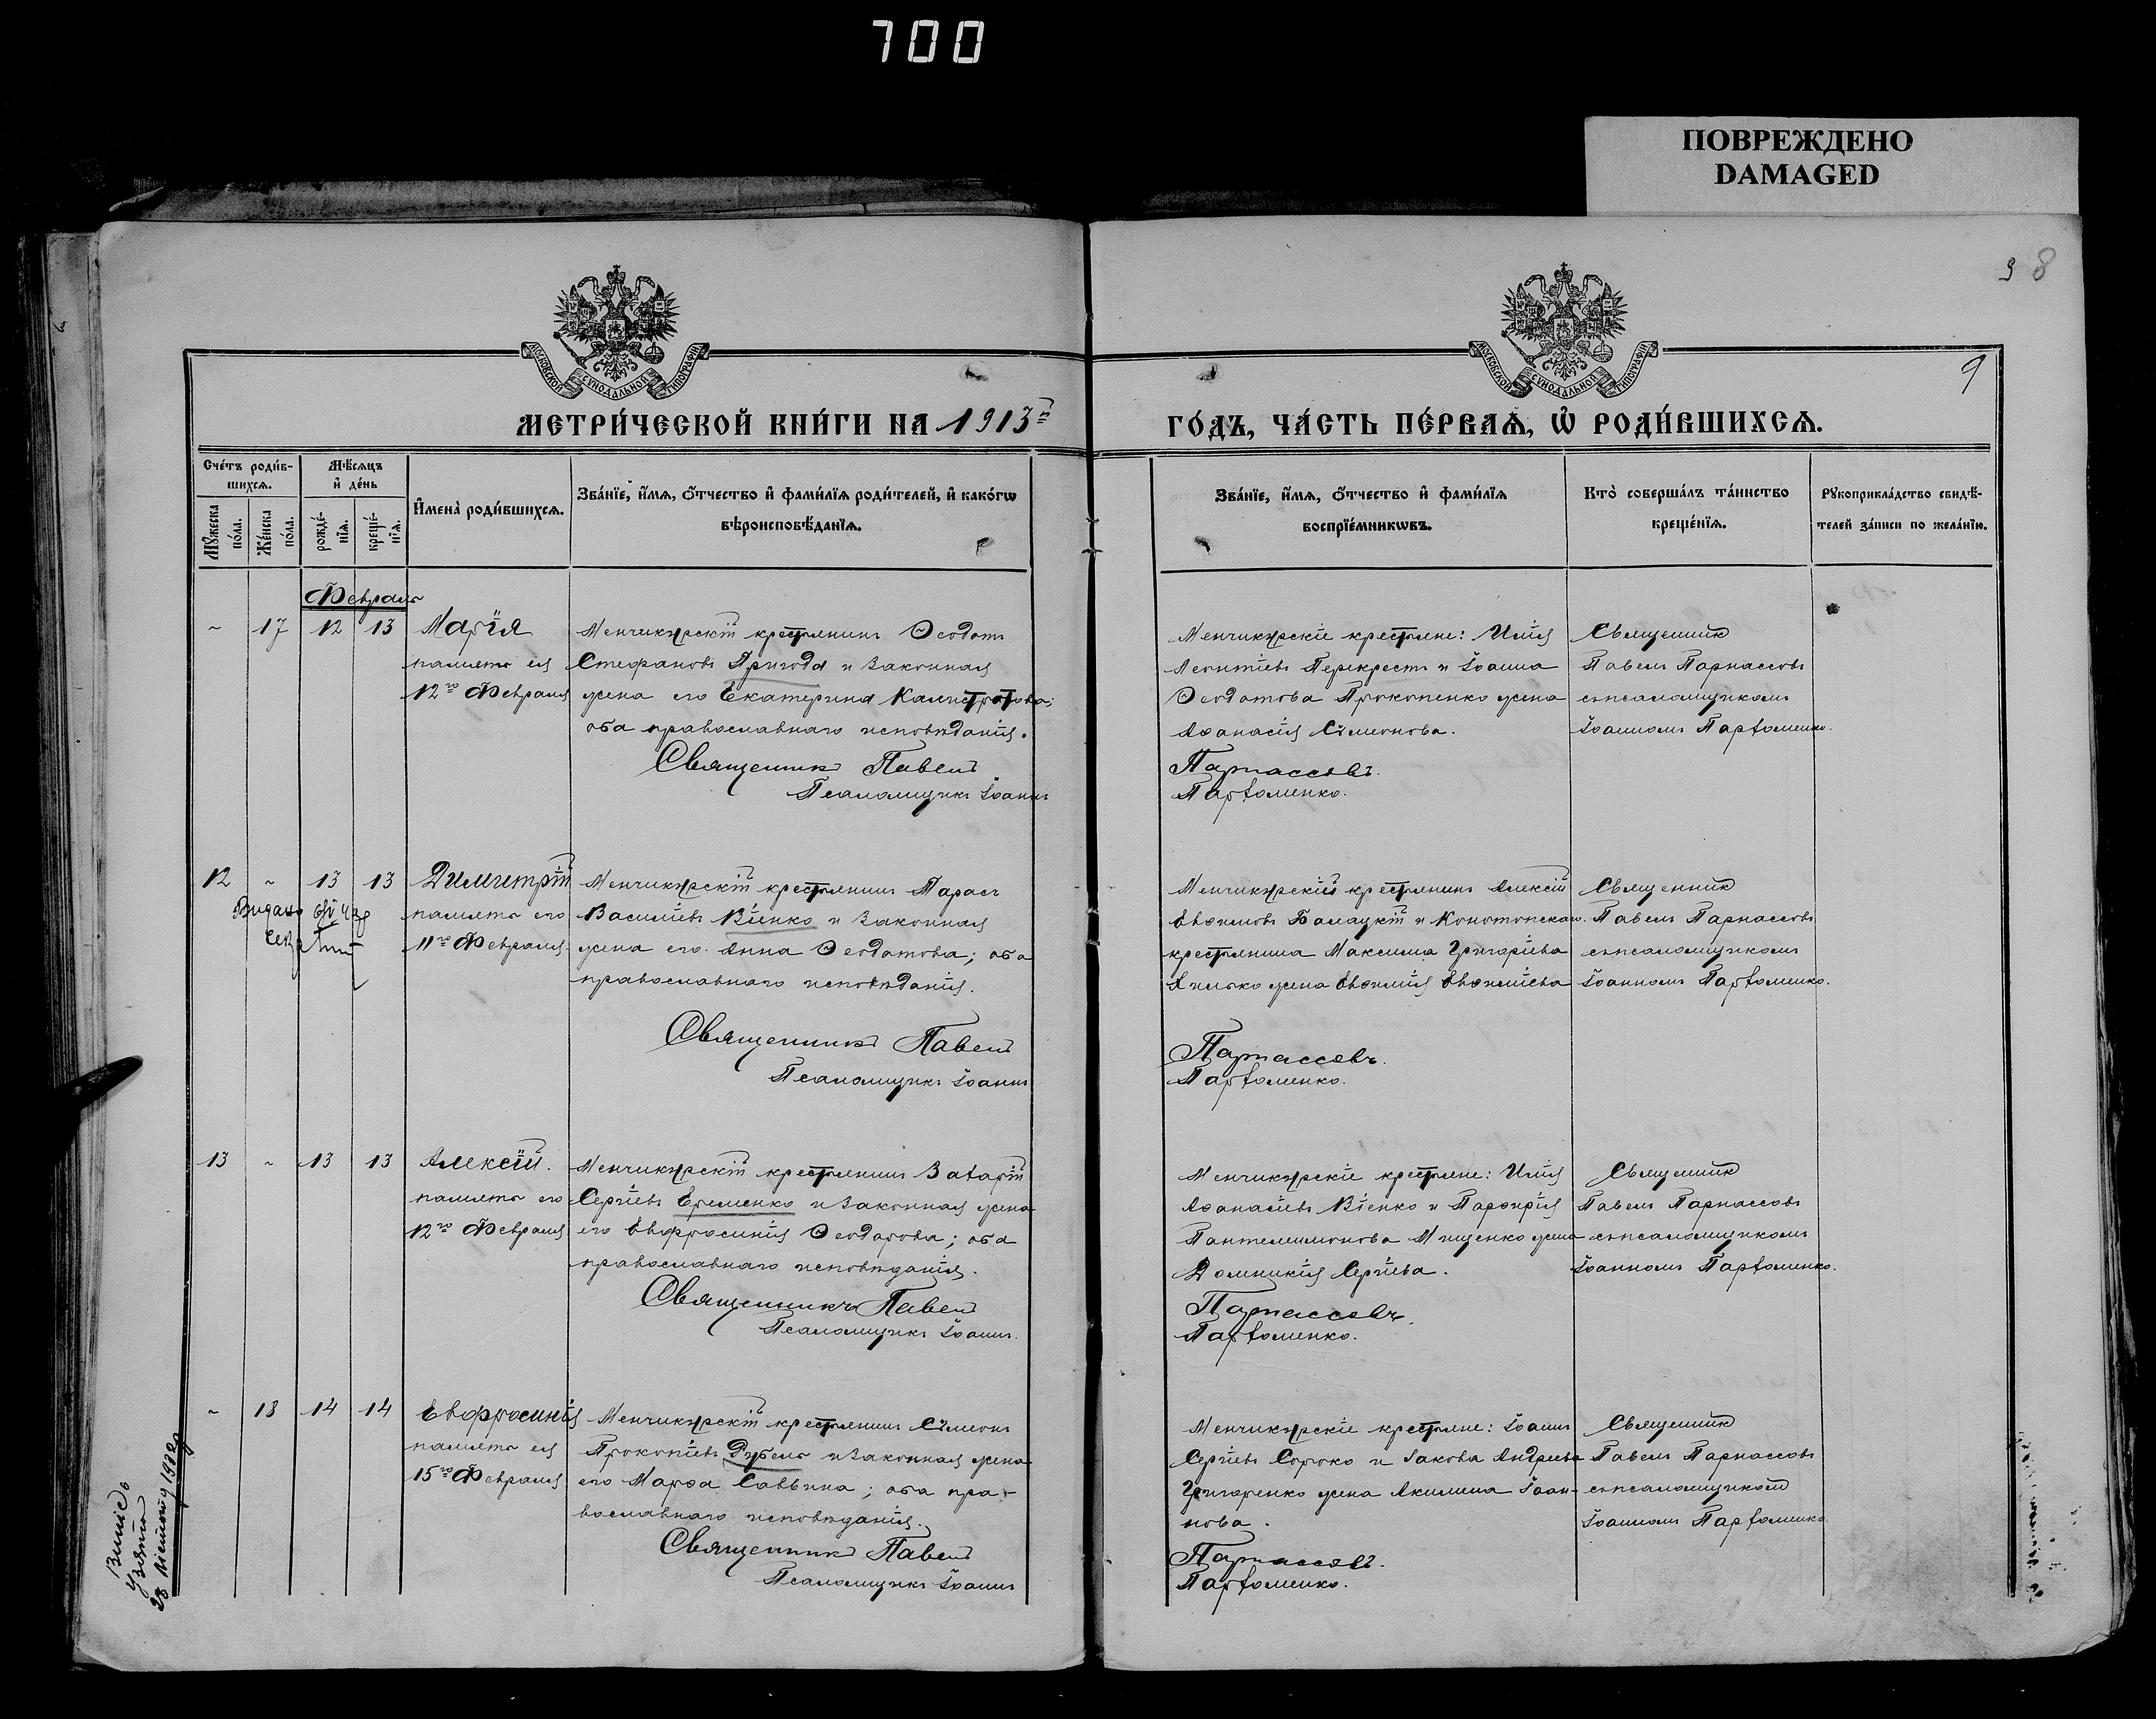 700
ПОВРЕЖДЕНО
DAMAGED
9 8
9
МОСКОВСКОЙ СУНОДАЛЬНОЙ ТИПОГРАФІИ
МОСКОВСКОЙ СУНОДАЛЬНОЙ ТИПОГРАФІИ
МЕТРИ́ЧЕСКОЙ КНИ́ГИ НА 1913й
ГО́ДЪ, ЧА́СТЬ ПЕ́РВАѦ, Ѡ҆ РОДИ́ВШИХСѦ.
Сче́тъ роди́в-
шихсѧ.
Мѣ́сѧцъ
и҆ де́нь
Мꙋ́жеска
по́ла.
Же́нска
по́ла.
рожде́-
нїѧ.
креще́-
нїѧ.
И҆мена̀ роди́вшихсѧ.
Зва́нїе, и҆́мѧ, ѻ҆́тчество и҆ фами́лїѧ роди́телей, и҆ како́гѡ
вѣроисповѣ́данїѧ.
Зва́нїе, и҆́мѧ, ѻ҆́тчество и҆ фами́лїѧ
воспрїе́мникѡвъ.
Кто̀ соверша́лъ та́инство
креще́нїѧ.
Рꙋкоприкла́дство свидѣ́-
телей за́писи по жела́нїю.
Февраль
~ 17 12 13 Марія
память ея
12го Февраля
Менчикурскій крестьянинъ Ѳеодотъ
Стефановъ Пригода и законная
жена его Екатерина Калистратова;
оба православнаго исповѣданія.
Священникъ Павелъ
Псаломщикъ Іоаннъ
Менчикурскіе крестьяне: Илія
Леонтіевъ Перекрестъ и Іоанна
Ѳеодотова Прокопенко жена
Аѳанасія Сѵмеонова.
Парнассовъ.
Парѳоменко.
Священникъ
Павелъ Парнассовъ
съ псаломщикомъ
Іоанномъ Парѳоменко.
12 ~ 13 13 Димитрій
память его
11го Февраля.
Видано
Менчикурскій крестьянинъ Тарасъ
Василіевъ Віенко и законная
жена его Анна Ѳеодотова; оба
православнаго исповѣданія.
Священникъ Павелъ
Псаломщикъ Іоаннъ
Менчикурскій крестьянинъ Алексій
Евѳимовъ Балацкій и Конотопскаго
крестьянина Максима Григоріева
жена Евѳимія Евѳиміева
Парнассовъ.
Парѳоменко.
Священникъ
Павелъ Парнассовъ
съ псаломщикомъ
Іоанномъ Парѳоменко.
13 ~ 13 13 Алексій.
память его
12го Февраля
Менчикурскій крестьянинъ Захарій
Сергіевъ Еременко и законная жена
его Евфросинія Ѳеодорова; оба
православнаго исповѣданія.
Священникъ Павелъ
Псаломщикъ Іоаннъ.
Менчикурскіе крестьяне: Илія
Аѳанасіевъ Віенко и Парѳирія
Пантелимонова Мищенко жена
Домникія Сергіева.
Парнассовъ.
Парѳоменко.
Священникъ
Павелъ Парнассовъ
съ псаломщикомъ
Іоанномъ Парѳоменко.
~ 18 14 14 Евфросинія
память ея
15го Февраля
Менчикурскій крестьянинъ Сѵмеонъ
Прокопіевъ и законная жена
его Марѳа Саввина; оба пра-
вославнаго исповѣданія.
Священникъ Павелъ
Псаломщикъ Іоаннъ
Менчикурскіе крестьяне: Іоаннъ
Сергіевъ Сороко и Іакова Андреева
Григоренко жена Акилина Іоан-
нова.
Парнассовъ.
Парѳоменко.
Священникъ
Павелъ Парнассовъ
съ псаломщикомъ
Іоанномъ Парѳоменко